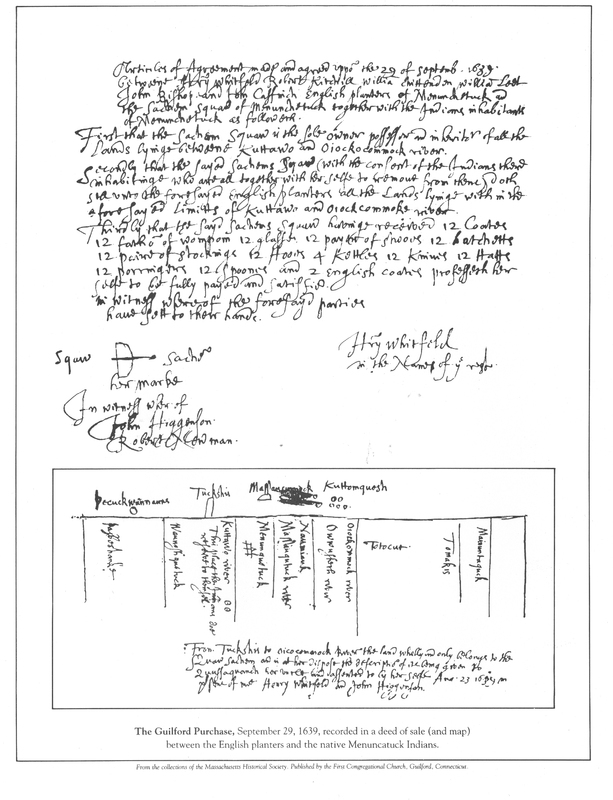 Articles of Agreement made and agreed upon the 29 of septemb. 1639.
betweene Hēry Whitfeld Robert Kitchill Willia Chittenden willia Leet
John Bishop and tom Caffinch English planters of Menunckatuck and
the Sachem Squaw of Menunckatuck together with the Indians inhabitants
of Menunckatuck as followeth.
First that the Sachem Squaw is the sole owner possessor and inheritor of all the
Lands lyinge betweene Kuttawo and Oiockcommock river.
Secondly that the sayd Sachems Squaw with the consent of the Indians there
inhabitinge who are all together with her selfe to remove from thence doth
sell unto the foresayed English planters all the Lands lyinge with in the
aforesayed limitts of Kuttawo and Oiockcommoke river.
Thirdly that the sayd Sachems Squaw havinge received 12 Coates
12 fathō of wompom 12 glasses 12 payer of shooes 12 hatchetts
12 paire of stockings 12 Hooes 4 Kettles 12 Knives 12 Hatts
12 porringers 12 spoones and 2 English coates professeth her
selfe to be fully payed and satisfied.
in witness whereof the foresayd parties
have sett to their hands.
Squaw Sachē
her marke
Hēry Whitfeld
in the Names of yᵉ rest
In witness wher of
John Higgenson
Robert Newman.
Tuckshis Kuttomquosh
Kuttawo river
Menunquatuck
Oiockommock river
Totocut
From Tuckshis to oiocommock river the land wholly and only belongs to the
Squaw sachem and is at her dispose the description of it being given by
Quissuquonsh her uncle and assented to by her selfe
me Henry Whitfeld and John Higgenson
The Guilford Purchase, September 29, 1639, recorded in a deed of sale (and map)
between the English planters and the native Menuncatuck Indians.
From the collections of the Massachusetts Historical Society. Published by the First Congregational Church, Guilford, Connecticut.